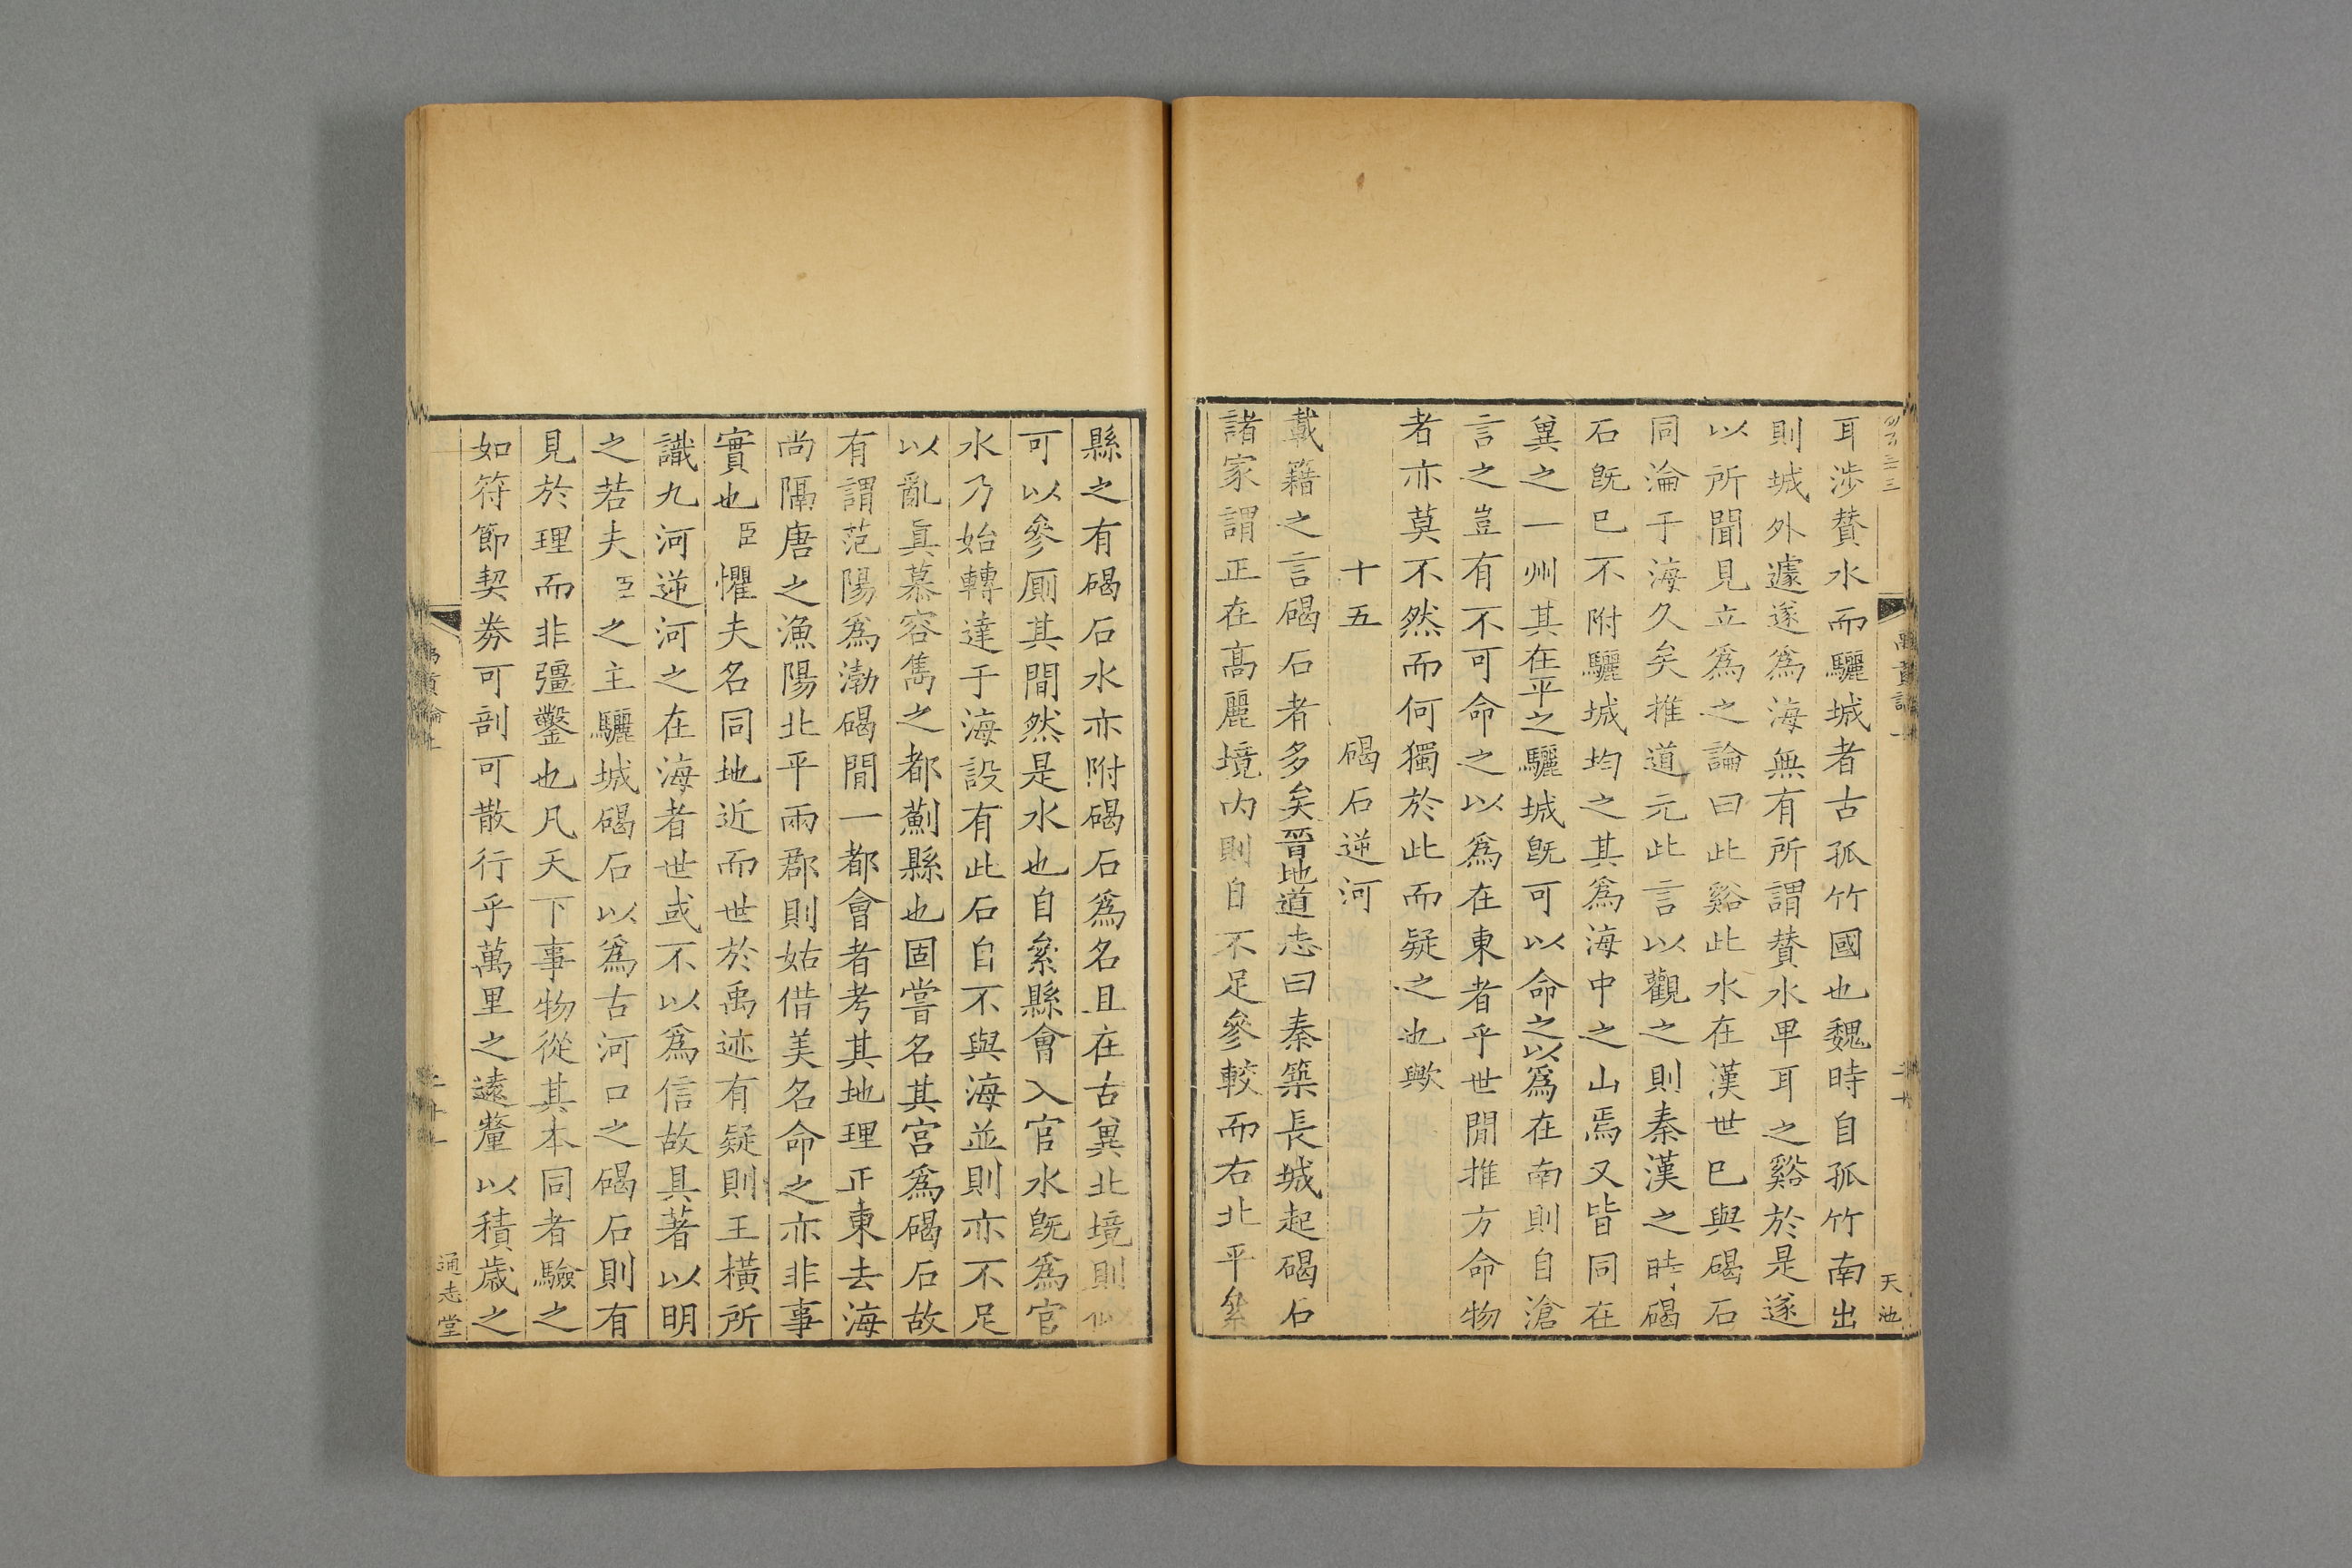 耳涉贊水而驪城者古孤竹國也魏時自孤竹南出
則城外遽遂爲海無有所謂贊水卑耳之谿於是遂
以所聞見立爲之論曰此谿此水在漢世已與碣石
同淪于海久矣推道元此言以觀之則秦漢之時碣
石旣已不附驪城均之其爲海中之山焉又皆同在
冀之一州其在平之驪城旣可以命之以爲在南則自滄
言之豈有不可命之以爲在東者乎世閒推方命物
者亦莫不然而何獨於此而疑之也歟
十五 碣石逆河
載籍之言碣石者多矣晉地道志曰秦築長城起碣石
諸家謂正在高麗境內則自不足參較而右北平絫
天池
縣之有碣石水亦附碣石爲名且在古冀北境則似
可以參厠其間然是水也自絫縣會入官水旣爲官
水乃始轉達于海設有此石自不與海並則亦不足
以亂眞慕容雋之都薊縣也固嘗名其宮爲碣石故
有謂范陽爲渤碣閒一都會者考其地理正東去海
尚隔唐之漁陽北平兩郡則姑借美名命之亦非事
實也臣懼夫名同地近而世於禹迹有疑則王橫所
識九河逆河之在海者世或不以爲信故具著以明
之若夫臣之主驪城碣石以爲古河口之碣石則有
見於理而非彊鑿也凡天下事物從其本同者驗之
如符節契券可剖可散行乎萬里之遠釐以積歲之
禹貢論上
二十一
通志堂